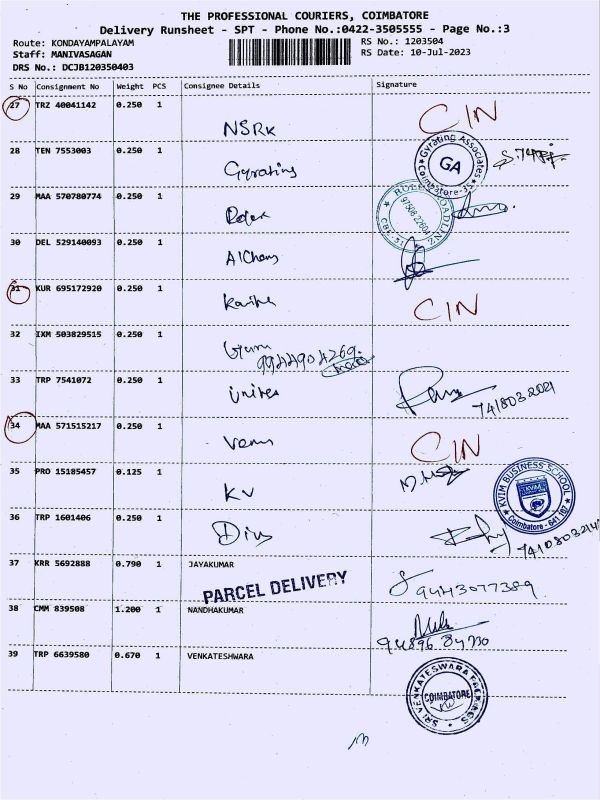 THE PROFESSIONAL COURIERS, COIMBATORE
Delivery Runsheet - SPT - Phone No.:0422-3505555 - Page No.:3
Route: KONDAYAMPALAYAM
Staff: MANIVASAGAN
DRS No.: DCJB120350403
RS No.: 1203504
RS Date: 10-Jul-2023
S No Consignment No Weight PCS Consignee Details Signature
27 TRZ 40041142 0.250 1 NSRK CIN
28 TEN 7553003 0.250 1 Gyrating
Gyrating Associates
GA
Coimbatore-35
29 MAA 570780774 0.250 1 Rolex
97508 22604
CBE-51
30 DEL 529140093 0.250 1 AlChem
31 KUR 695172920 0.250 1 CIN
32 IXM 503829515 0.250 1 Guru
9944904269
33 TRP 7541072 0.250 1 Unitex
7418032021
34 MAA 571515217 0.250 1 Venus CIN
35 PRO 15185457 0.125 1 KV
KVIM BUSINESS SCHOOL
KVIM
Coimbatore - 641 107
36 TRP 1601406 0.250 1 Divs
37 KRR 5692888 0.790 1 JAYAKUMAR
9443077389
PARCEL DELIVERY
38 CMM 839508 1.200 1 NANDHAKUMAR
39 TRP 6639580 0.670 1 VENKATESHWARA
SRI VENKATESWARA
COIMBATORE